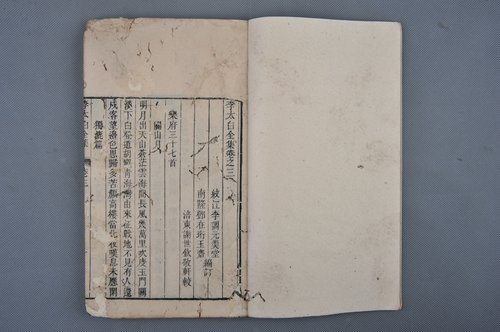 李太白全集卷之三
綏江李調元羹堂
南隆鄧在珩玉齋 編訂
涪東謝世欽敬軒較
樂府三十七首
關山月
明月出天山蒼茫雲海間長風幾萬里吹度玉門關
漢下白登道胡窺青海灣由來征戰地不見有人還
戍客望邊色思歸多苦顏高樓當此夜嘆息未應閒
獨漉篇
李太白全集